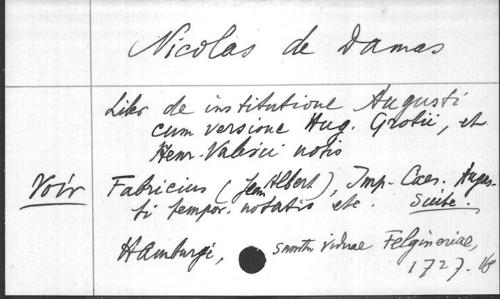 Nicolas de Damas
Liber de institutione Augusti
cum versione Hug. Grotii, et
Henr. Valesii notis
Voir Fabricius (Jean Albert), Imp. Caes. Augus-
ti tempor. notatis etc. Suite.
Hamburgi, sumtu viduae Felgineriae,
1727.